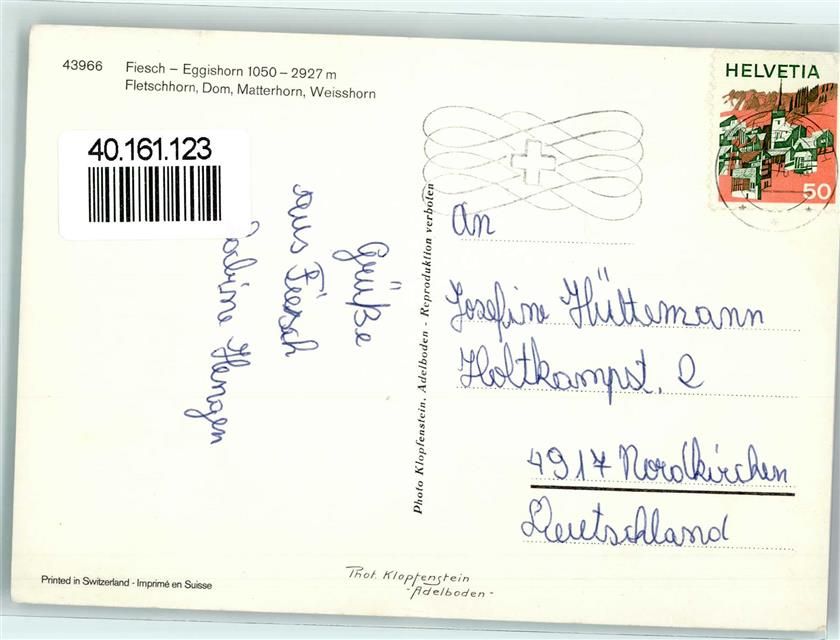 43966 Fiesch – Eggishorn 1050 – 2927 m
Fletschhorn, Dom, Matterhorn, Weisshorn
40.161.123
Grüße
aus Fiesch
Hangen
Photo Klopfenstein, Adelboden - Reproduktion verboten
HELVETIA
50
An
Josefine Hüttemann
Holtkampst. 2
4717 Nordkirchen
Deutschland
Printed in Switzerland - Imprimé en Suisse
Phot. Klopfenstein
- Adelboden -